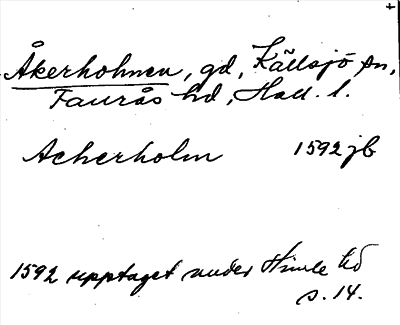 Åkerholmen, gd, Källsjö sn,
Faurås hd, Hall. l.
Acherholm 1592 jb
1592 upptaget under Himle hd
s. 14.